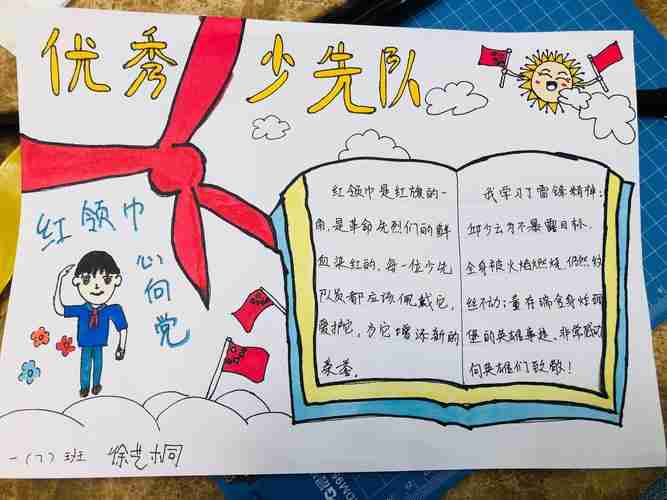 优秀少先队
红领巾
心向党
红领巾是红旗的一
角,是革命先烈们的鲜
血染红的,每一位少先
队员都应该佩戴它,
爱护它,为它增添新的
荣誉。
我学习了雷锋精神;
邱少云为不暴露目标,
全身被火焰燃烧,仍然纹
丝不动;董存瑞舍身炸碉
堡的英雄事迹,非常感动
向英雄们致敬!
一(7)班 徐艺桐